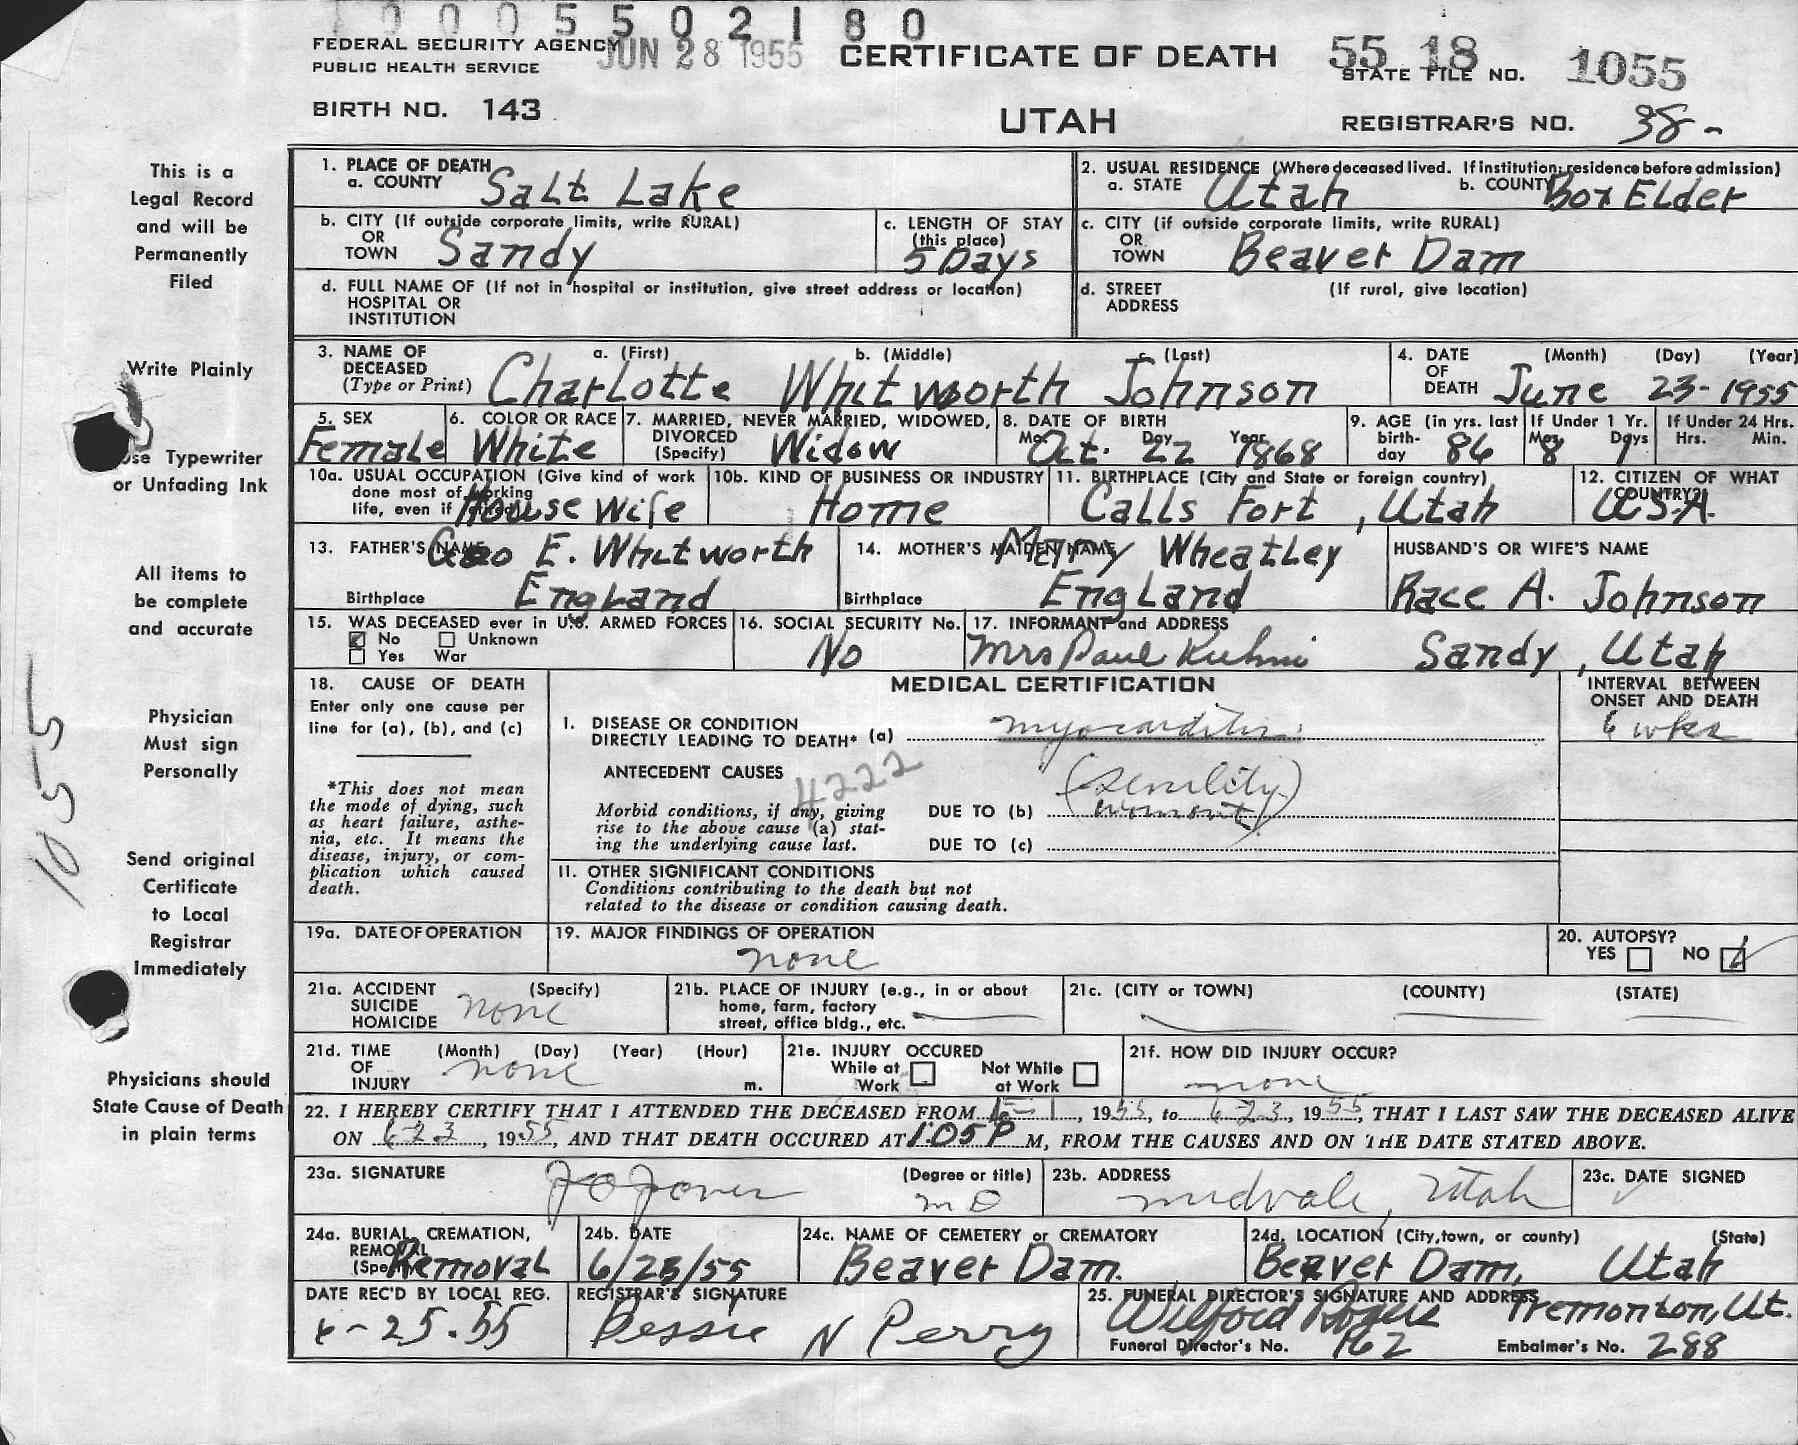 1 0 0 0 5 5 0 2 1 8 0
FEDERAL SECURITY AGENCY JUN 28 1955 CERTIFICATE OF DEATH 55 18 1055
PUBLIC HEALTH SERVICE STATE FILE NO.
BIRTH NO. 143 UTAH REGISTRAR'S NO. 38-
This is a
Legal Record
and will be
Permanently
Filed
Write Plainly
Use Typewriter
or Unfading Ink
All items to
be complete
and accurate
Physician
Must sign
Personally
Send original
Certificate
to Local
Registrar
Immediately
Physicians should
State Cause of Death
in plain terms
1055
1. PLACE OF DEATH
a. COUNTY Salt Lake
2. USUAL RESIDENCE (Where deceased lived. If institution; residence before admission)
a. STATE Utah b. COUNTY Box Elder
b. CITY (If outside corporate limits, write RURAL)
OR
TOWN Sandy
c. LENGTH OF STAY
(this place)
5 Days
c. CITY (if outside corporate limits, write RURAL)
OR
TOWN Beaver Dam
d. FULL NAME OF (If not in hospital or institution, give street address or location)
HOSPITAL OR
INSTITUTION
d. STREET (If rural, give location)
ADDRESS
3. NAME OF a. (First) b. (Middle) c. (Last)
DECEASED
(Type or Print) Charlotte Whitworth Johnson
4. DATE (Month) (Day) (Year)
OF
DEATH June 23-1955
5. SEX
Female
6. COLOR OR RACE
White
7. MARRIED, NEVER MARRIED, WIDOWED,
DIVORCED
(Specify) Widow
8. DATE OF BIRTH
Mo. Day Year
Oct. 22 1868
9. AGE (in yrs. last
birth-
day 86
If Under 1 Yr.
Mos. Days
8 1
If Under 24 Hrs.
Hrs. Min.
10a. USUAL OCCUPATION (Give kind of work
done most of working
life, even if House Wife
10b. KIND OF BUSINESS OR INDUSTRY
Home
11. BIRTHPLACE (City and State or foreign country)
Calls Fort, Utah
12. CITIZEN OF WHAT
COUNTRY?
U.S.A.
13. FATHER'S NAME Geo E. Whitworth
Birthplace England
14. MOTHER'S MAIDEN NAME Mary Wheatley
Birthplace England
HUSBAND'S OR WIFE'S NAME
Race A. Johnson
15. WAS DECEASED ever in U.S. ARMED FORCES
No Unknown
Yes War
16. SOCIAL SECURITY No.
No
17. INFORMANT and ADDRESS
Mrs Paul Kuhni Sandy, Utah
18. CAUSE OF DEATH
Enter only one cause per
line for (a), (b), and (c)
*This does not mean
the mode of dying, such
as heart failure, asthe-
nia, etc. It means the
disease, injury, or com-
plication which caused
death.
MEDICAL CERTIFICATION
I. DISEASE OR CONDITION
DIRECTLY LEADING TO DEATH* (a) myocarditis
ANTECEDENT CAUSES 4222
Morbid conditions, if any, giving
rise to the above cause (a) stat-
ing the underlying cause last.
(senility)
DUE TO (b)
DUE TO (c)
INTERVAL BETWEEN
ONSET AND DEATH
6 wks
II. OTHER SIGNIFICANT CONDITIONS
Conditions contributing to the death but not
related to the disease or condition causing death.
19a. DATE OF OPERATION
19. MAJOR FINDINGS OF OPERATION
none
20. AUTOPSY?
YES NO
21a. ACCIDENT (Specify)
SUICIDE
HOMICIDE none
21b. PLACE OF INJURY (e.g., in or about
home, farm, factory
street, office bldg., etc.
21c. (CITY or TOWN) (COUNTY) (STATE)
21d. TIME (Month) (Day) (Year) (Hour)
OF
INJURY none m.
21e. INJURY OCCURED
While at Not While
Work at Work
21f. HOW DID INJURY OCCUR?
none
22. I HEREBY CERTIFY THAT I ATTENDED THE DECEASED FROM 1, 1955, to 6-23, 1955, THAT I LAST SAW THE DECEASED ALIVE
ON 6-23, 1955, AND THAT DEATH OCCURED AT 1:05 P M, FROM THE CAUSES AND ON THE DATE STATED ABOVE.
23a. SIGNATURE (Degree or title)
J O Jones M D
23b. ADDRESS
Midvale, Utah
23c. DATE SIGNED
24a. BURIAL, CREMATION,
REMOVAL
(Specify) Removal
24b. DATE
6/23/55
24c. NAME OF CEMETERY or CREMATORY
Beaver Dam.
24d. LOCATION (City, town, or county) (State)
Beaver Dam, Utah
DATE REC'D BY LOCAL REG.
6-25-55
REGISTRAR'S SIGNATURE
Bessie N Perry
25. FUNERAL DIRECTOR'S SIGNATURE AND ADDRESS
Wilford Rogers Tremonton, Ut.
Funeral Director's No. 162 Embalmer's No. 288